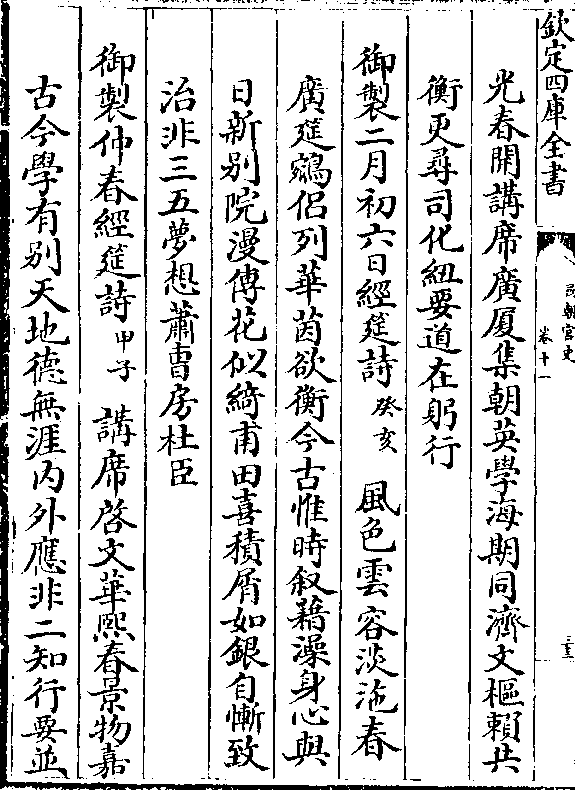 欽定四庫全書
國朝宮史
卷十一
光春開講席廣厦集朝英學海期同濟文樞賴共
衡更尋司化紐要道在躬行
御製二月初六日經筵詩癸亥 風色雲容淡沲春
廣筵鵷侣列華茵欲衡今古惟時叙藉澡身心與
日新别院漫傳花似綺甫田喜積屑如銀自慚致
治非三五夢想蕭曹房杜臣
御製仲春經筵詩甲子 講席啓文華熙春景物嘉
古今學有别天地德無涯内外應非二知行要並